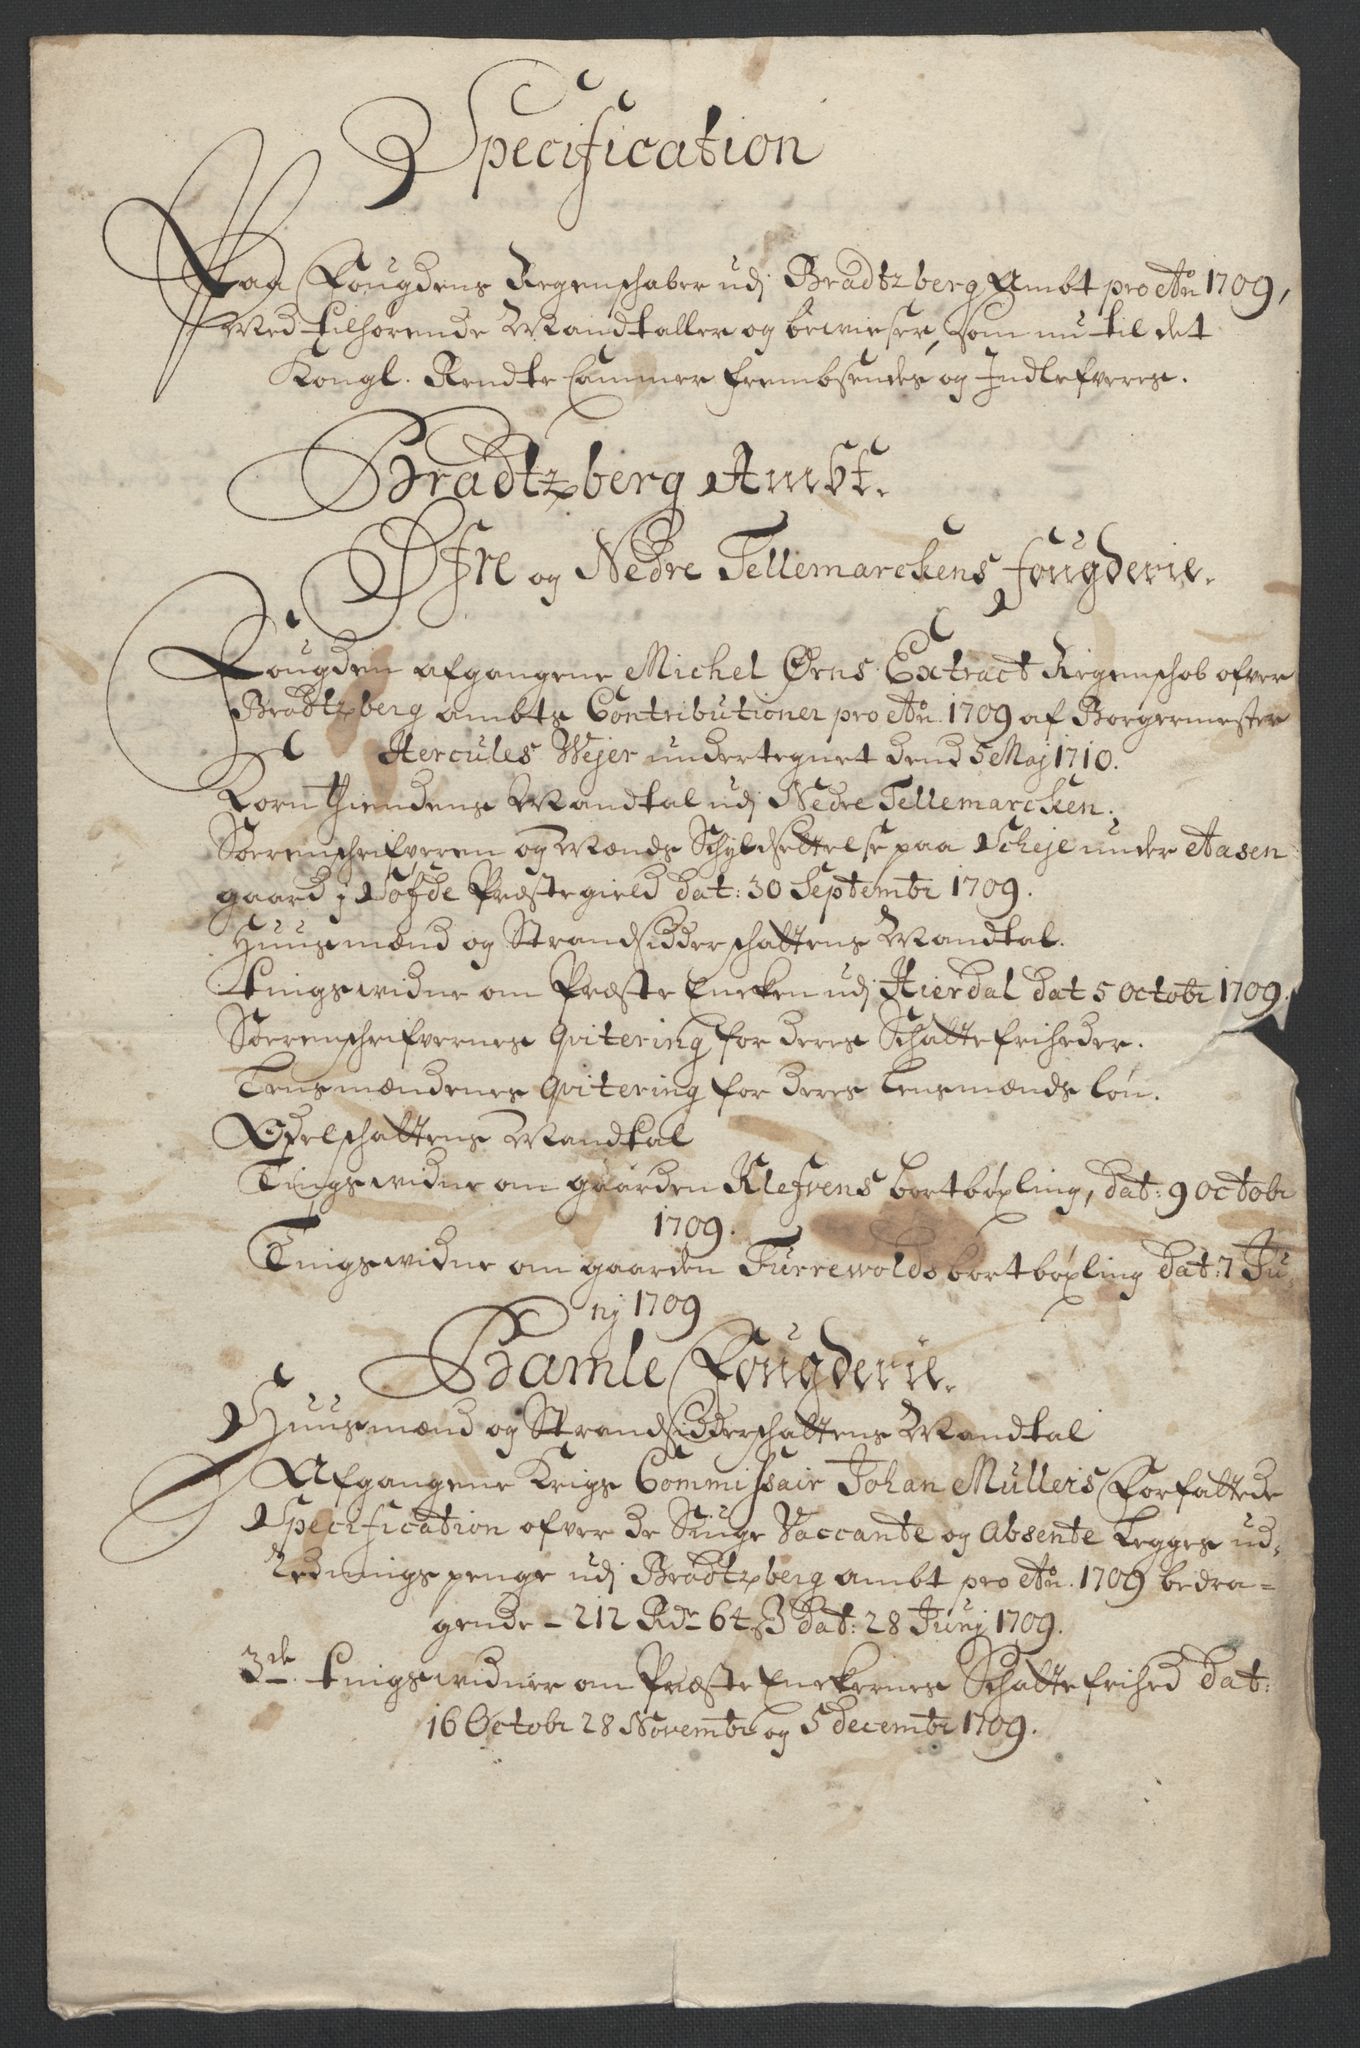 Specification
Paa Fougdens Regenschaber udj Bradtzberg Ambt pro Ao 1709,
Med tilhørende Mandtaller og bewiser, som nu til det
Kongl. Rendte Cammer frembsendes og Indlefveres.
Bradtzberg Ambt.
Øfre og Nedre Tellemarckens fougderie.
Fougden afgangene Michel Ørns Extract Regenschab ofver
Bradtzberg ambts Contributioner pro Ao. 1709 af Borgermester
Hercules Wejer undertegnet dend 5 Maj 1710.
Korn thiendens Mandtal udj Nedre Tellemarcken.
Sorenschrifveren og Mænds Schyldsettelse paa Scheje under Aasen
gaard j Søfde Præstegield dat: 30 Septembr 1709.
Huusmænd og Strandsidderschattens Mandtal.
tingswidne om Præste Encken udj Hierdal dat 5 Octobr 1709.
Sorenschrifvernes qvitering for deres Schattefriheder.
Lensmændenes qvitering for deres Lensmænds løn.
Odelschattens Mandtal
Tingswidne om gaarden Klefvens bortbøxling, dat: 9 Octobr
1709.
Tingswidne om gaarden Furrewolds bortbøxling dat: 7 Ju-
nj 1709
Bamle Fougderie.
Huusmænd og Strandsidderschattens Mandtal
Afgangene Krigs Commissair Johan Mullers Forfattede
Specification ofver de Siuge Vaccante og Absente Legges ud-
rednings penge udj Bradtzberg ambt pro Ao. 1709 bedra-
gende - 212 Rdr 64 ß dat: 28 Junj 1709.
3de. tingswidner om Præste Enckernes Schattefrihed dat:
16 Octobr 28 Novembr og 5 decembr 1709.